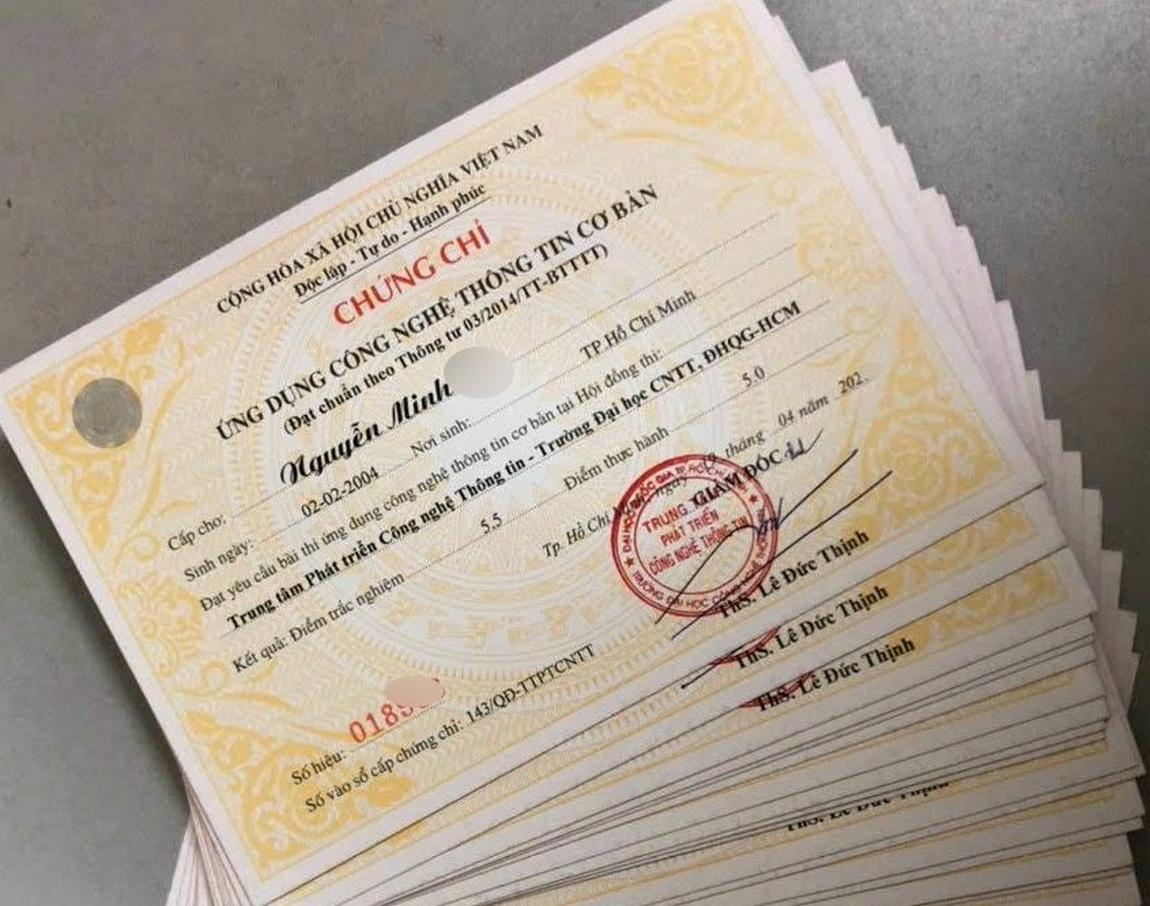 CỘNG HÒA XÃ HỘI CHỦ NGHĨA VIỆT NAM
Độc lập - Tự do - Hạnh phúc
CHỨNG CHỈ
ỨNG DỤNG CÔNG NGHỆ THÔNG TIN CƠ BẢN
(Đạt chuẩn theo Thông tư 03/2014/TT-BTTTT)
Cấp cho: Nguyễn Minh
Sinh ngày: 02-02-2004 Nơi sinh: TP Hồ Chí Minh
Đạt yêu cầu bài thi ứng dụng công nghệ thông tin cơ bản tại Hội đồng thi:
Trung tâm Phát triển Công nghệ Thông tin - Trường Đại học CNTT, ĐHQG-HCM
Kết quả: Điểm trắc nghiệm 5.5 Điểm thực hành 5.0
Tp. Hồ Chí ngày tháng 04 năm 202
GIÁM ĐỐC
TRUNG TÂM
PHÁT TRIỂN
CÔNG NGHỆ THÔNG TIN
ThS. Lê Đức Thịnh
Số hiệu: 0189
Số vào sổ cấp chứng chỉ: 143/QĐ-TTPTCNTT
ThS. Lê Đức Thịnh
ThS. Lê Đức Thịnh
ThS. Lê Đức Thịnh